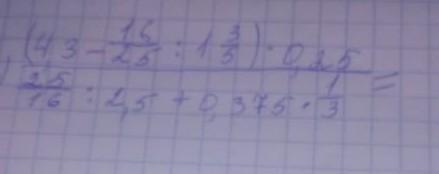 (4,3 - 16/25 : 1 3/5) · 0,25 =
25/16 : 2,5 + 0,375 · 1/3